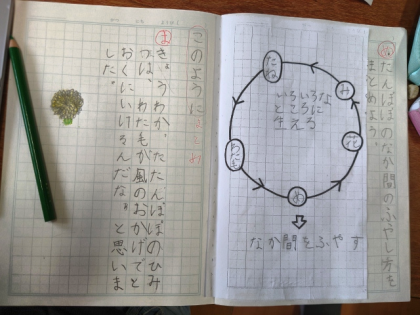 め たんぽぽのなか間のふやし方を
まとめよう。
たね
み
花
め
いろいろな
ところに
生える
なか間をふやす
このように
ま
きょうわかったたんぽぽのひみ
つは、わた毛が風のおかげでと
おくにいけるんだな。と思いま
した。